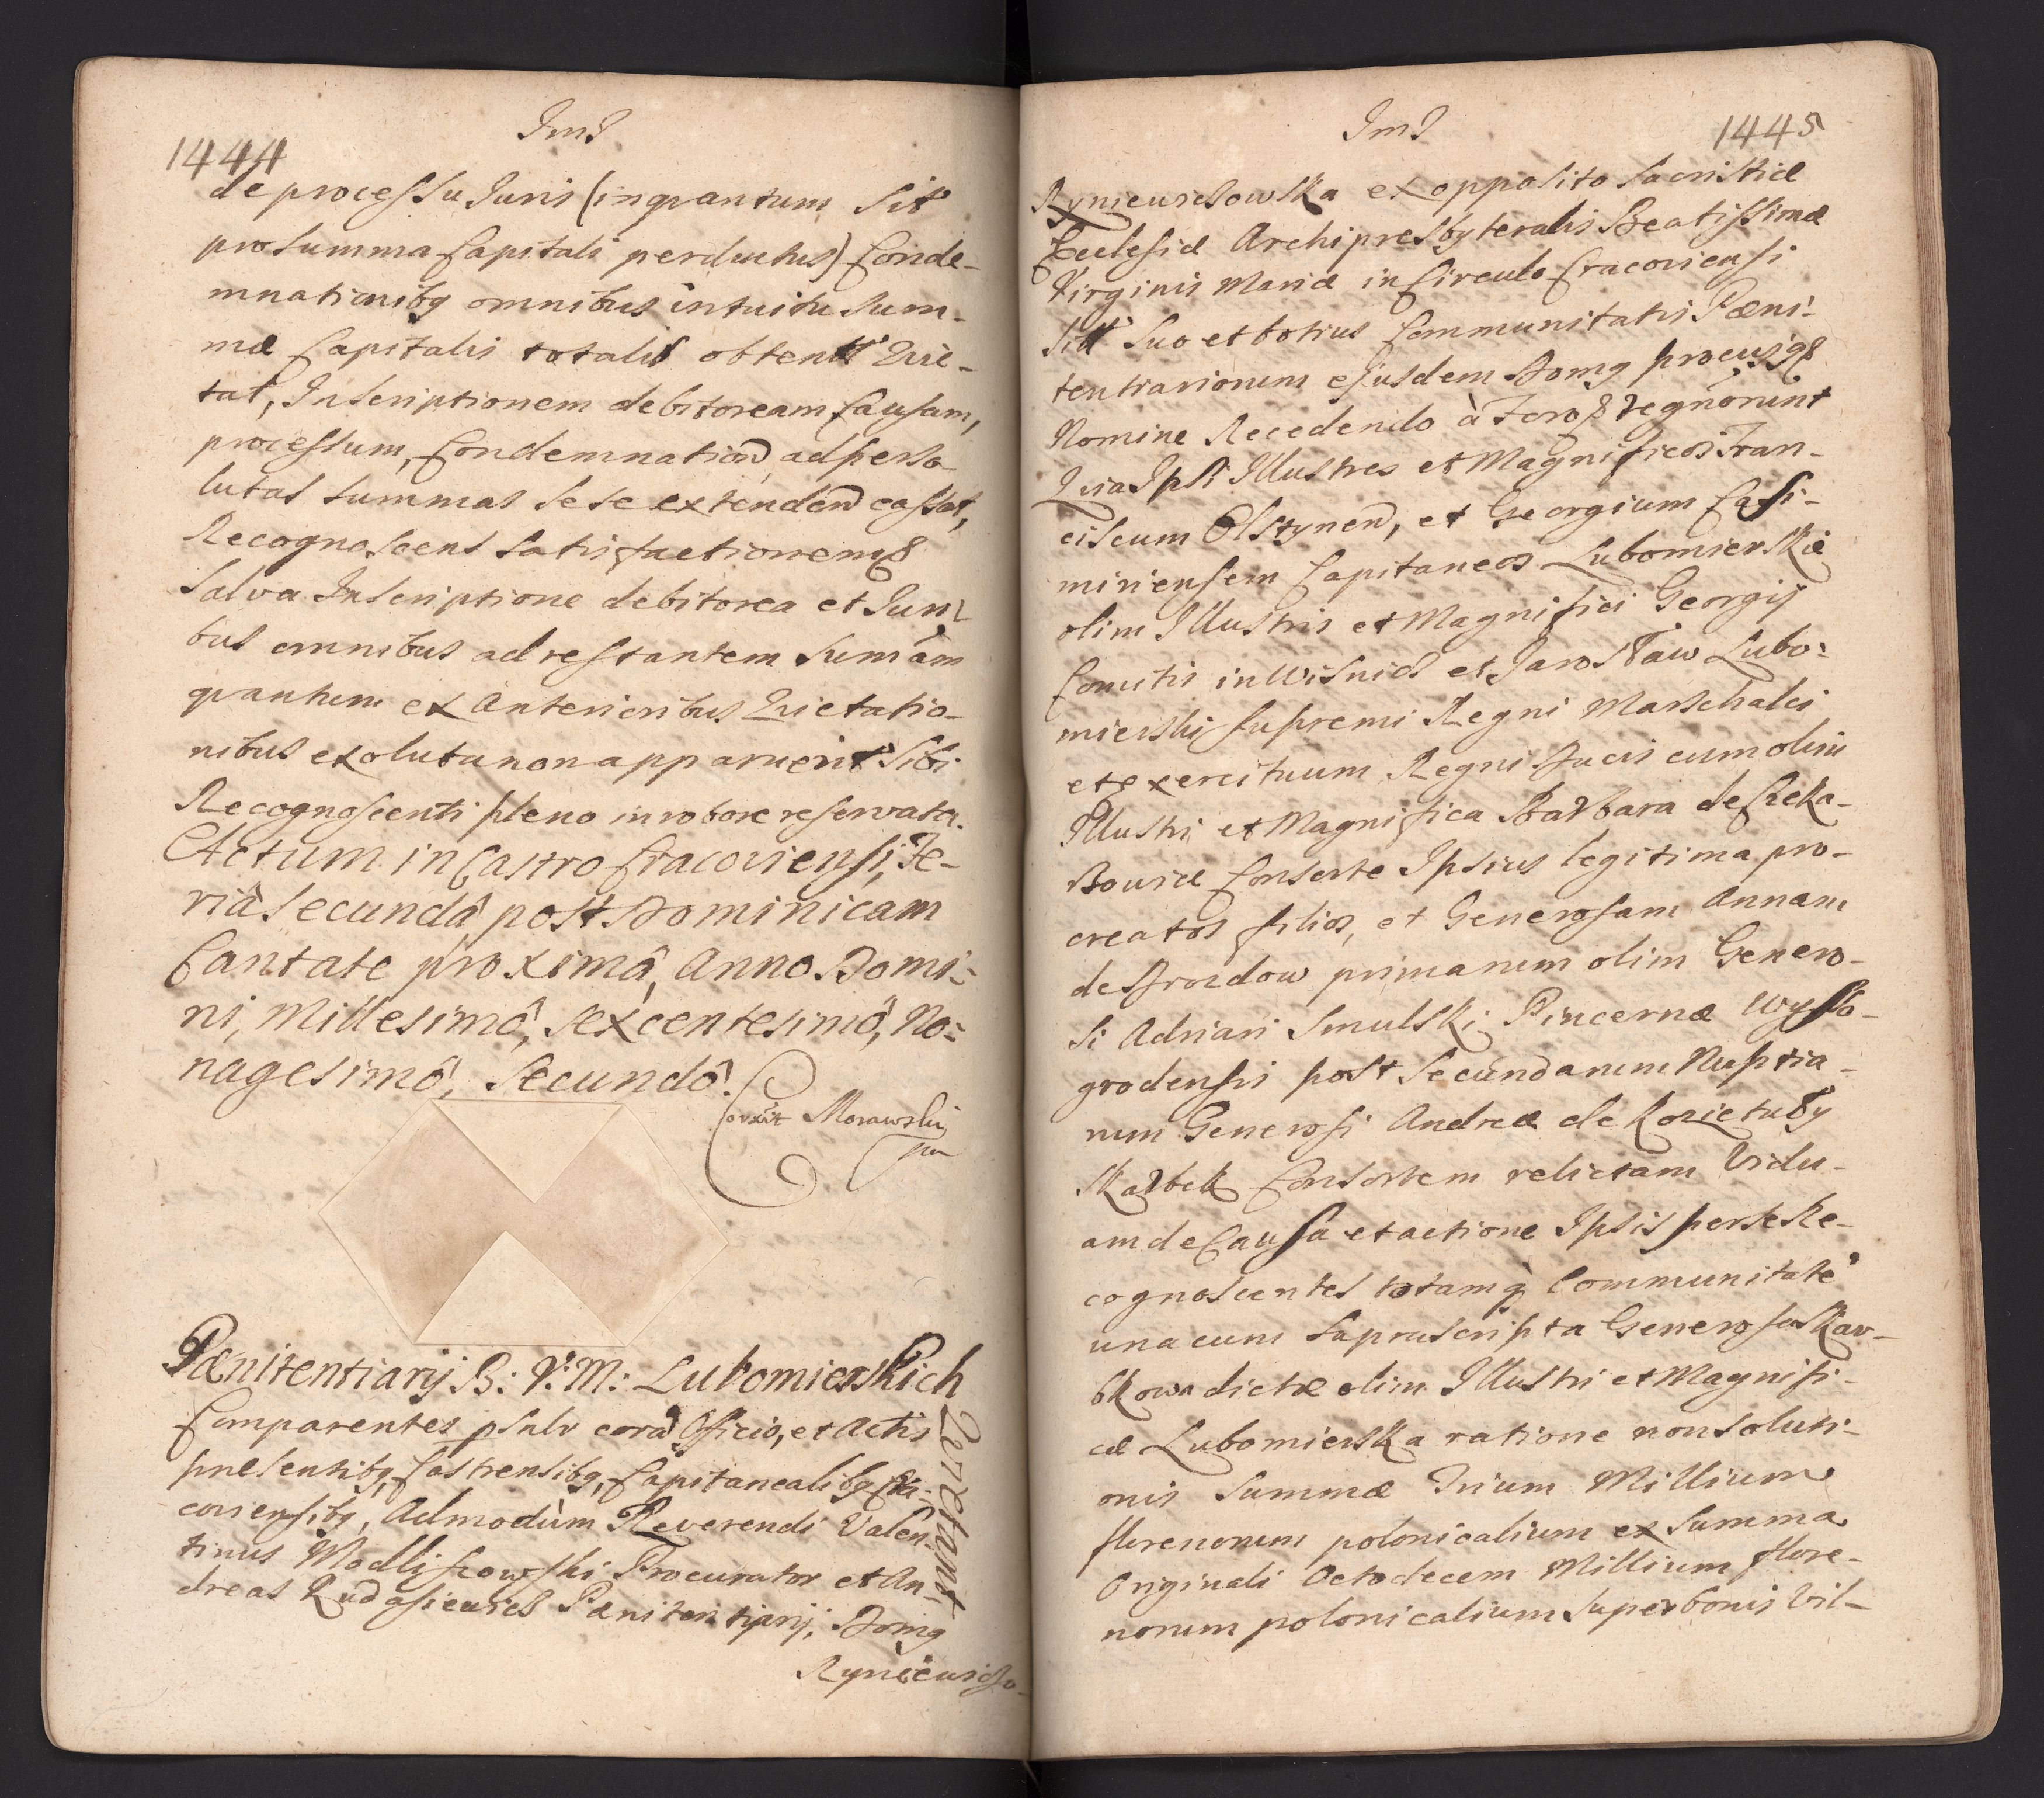 1444
JmJ
de processu Juris (inquantum sit
pro summa Capitali perductus) Conde-
mnationibq omnibus intuitu sum-
mæ Capitalis totalis obtent Quie-
tat, Inscriptionem debitoream Causam,
processum, Condemnation adperso-
lutas summas sese extenden cassat,
Recognoscens satisfactionemq
salva Inscriptione debitorea et Juri-
bus omnibus ad restantem sumam
quantum ex Anterioribus Quietatio-
nibus exoluta non apparuerit sibi
Recognoscenti pleno in robore reservata.
Actum in Castro Cracoviensi, Fe-
riâ secundâ post Dominicam
Cantate proximâ, Anno Domi-
ni, Millesimô, sexcentesimô, No-
nagesimô, Secundô.
Corxit Morawski
mp
Pænitentiarij B: V: M: Lubomierskich
Quietant
Comparentes psnlr corã Officio, et Actis
pnesentibq, Castrensibq, Capitanealibq Cra-
coviensibq, Admodùm Reverendi Valen-
tinus Modliszowski Procurator et An-
dreas Rudasiewicz Pænitentiarij, Domq
Ryniewiczo-
JmJ
1445
Ryniewiczowska ex opposito Sacristiæ
Ecclesiæ Archipresbyteralis Beatissimæ
Virginis Mariæ in Circulo Cracoviensi
sitt suo et totius Communitatis Pæni-
tentiariorum ejusdem Domq procuigz
Nomine Recedendo à Foro z regnorunt
Quia Ipsi Illustres et Magnificos Fran-
ciscum Olstynen, et Georgium Casi-
miriensem Capitaneos Lubomierskie
olim Illustris et Magnifici Georgij
Comitis in Wisnicz et Jarosław Lubo-
mierski supremi Regni Marschalci
et exercituum Regni Ducis cum olim
Illustri et Magnifica Barbara de Reka-
Bouræ Consorte Ipsius legitima pro-
creatos filios, et Generosam Annam
de Drozdow primarum olim Genero-
si Adriani Smulski Pincernæ Wyszo-
grodensis post secundarum Nuptia-
rum Generosi Andreæ de Kozietuły
Skarbek Consortem relictam Vidu-
am de Causa et actione Ipsis per se Re-
cognoscentes totamq Communitatẽ
una cum Suprascripta Generosa Skar-
bkowa dictæ olim Illustri et Magnifi-
cæ Lubomierska ratione non soluti-
onis Summæ Trium Millium
florenorum polonicalium ex Summa
Originali Octodecem Millium flore-
norum polonicalium super bonis Vil-